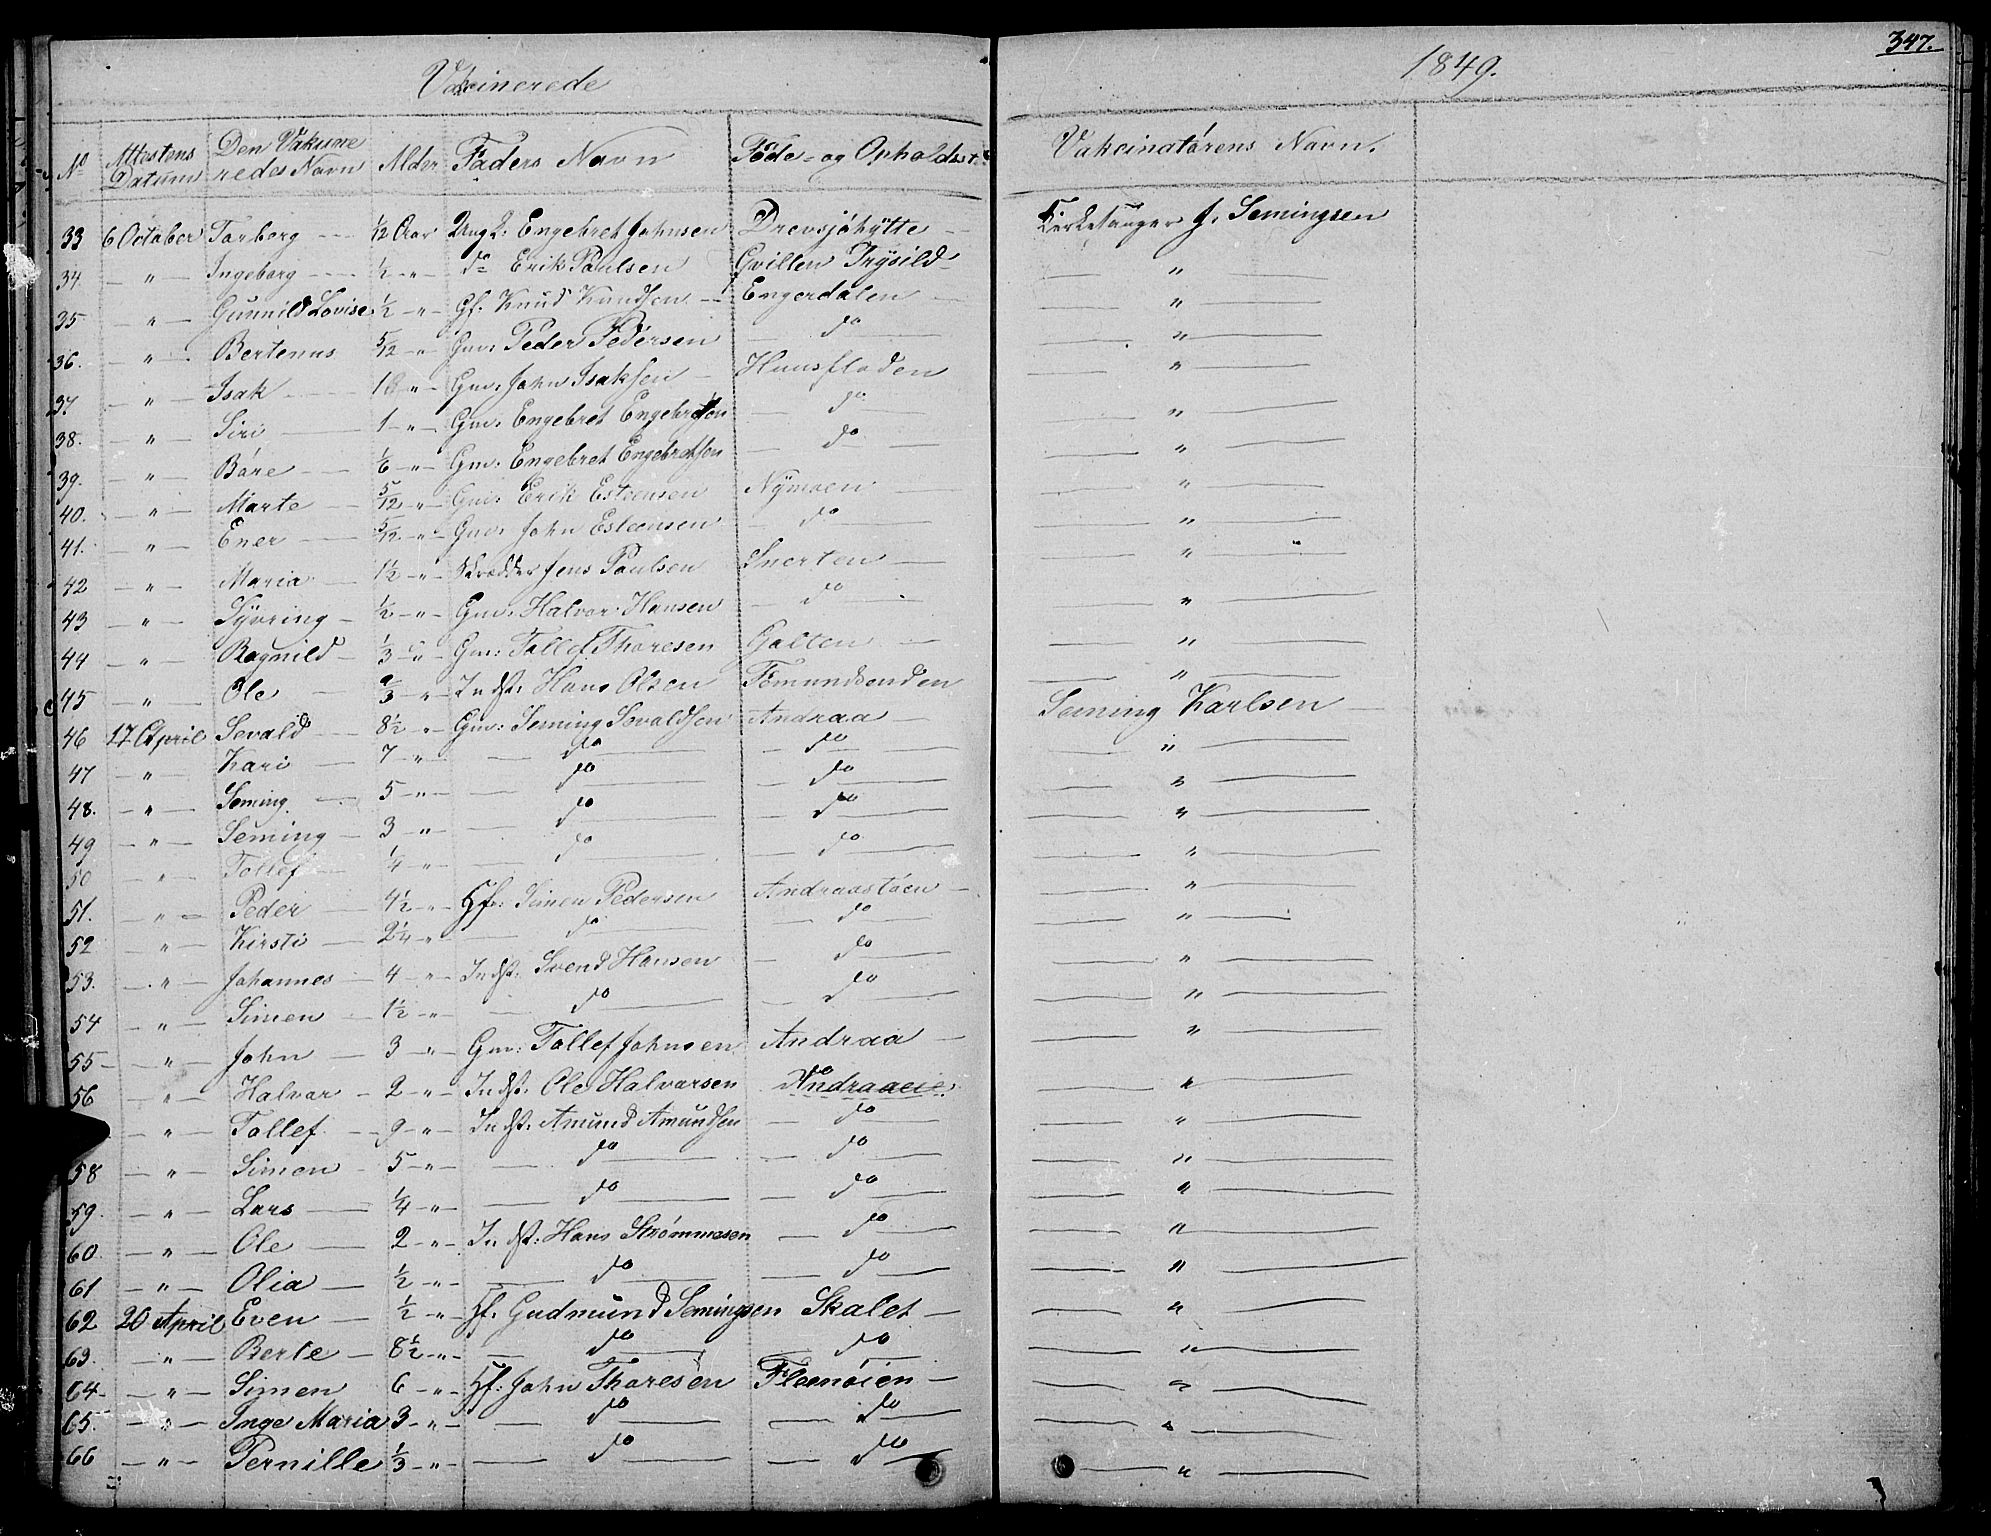 347.
Vakcinerede 1849.
No Attestens Datum Den Vakcineredes Navn Alder Faders Navn Føde- og Opholdsst. Vakcinatørens Navn.
33 6 October Torborg ½ Aar Ungk: Engebret Johnsen Drevsjøhytte Kirkesanger J. Semingsen
34 " Ingeborg ½ " do Erik Paulsen Trysild "
35 " Gunnild Lovise ½ " Gf: Knud Knudsen Engerdalen "
36. " Bertenus 5/12 " Gm: Peder Pedersen do "
37 " Isak " Gm: John Isaksen "
38. " Siri 1 " Gm: Engebret Engebretsen do "
39. " Bare 1/6 " Gm: Engebret Engebretsen do "
40. " Marte 5/12 " Gm: Erik Esteensen Nymoen "
41. " Ener 5/12 " Gm: John Esteensen do "
42 " Maria 1½ " Skrædder Jens Paulsen Snerten "
43 " Syvring ½ " Gm: Halvor Hansen do "
44 " Ragnild 1/3 " Gm: Tollef Thoresen Galten "
45 " Ole 2/3 " Indst: Hans Olsen Femundsenden "
46 17 April Sevald 8½ " Gm: Seming Sevaldsen Andraa Seming Karlsen
47 " Kari 7 " do do "
48. " Seming 5 " do do "
49 " Seming 3 " do do "
50 " Tollef ¼ " do do "
51. " Peder 4½ " Hf: Simen Pedersen Andraastøen "
52 " Kirsti 2¼ " do do "
53. " Johannes 4 " Indst: Svend Hansen do "
54 " Simen 1½ " do do "
55 " John 3 " Gm: Tollef Johnsen Andraa "
56 " Halvor 2 " Indst: Ole Halvorsen do Andraaeie "
" Tollef 9 " Indst: Amund Amundsen do "
58 " Simen 5 " do do "
59. " Lars ¼ " do do "
60. " Ole 2 " Indst: Hans Strømmesen do "
61 " Olia ½ " do do "
62 20 April Even ½ " Hf: Gudmund Semingsen Skalet "
63. " Berte 8½ " do do "
64 " Simen 6 " Hf: John Thoresen Floenøien "
65. " Inge Maria 3 " do do "
66 " Pernille 1/3 " do do "